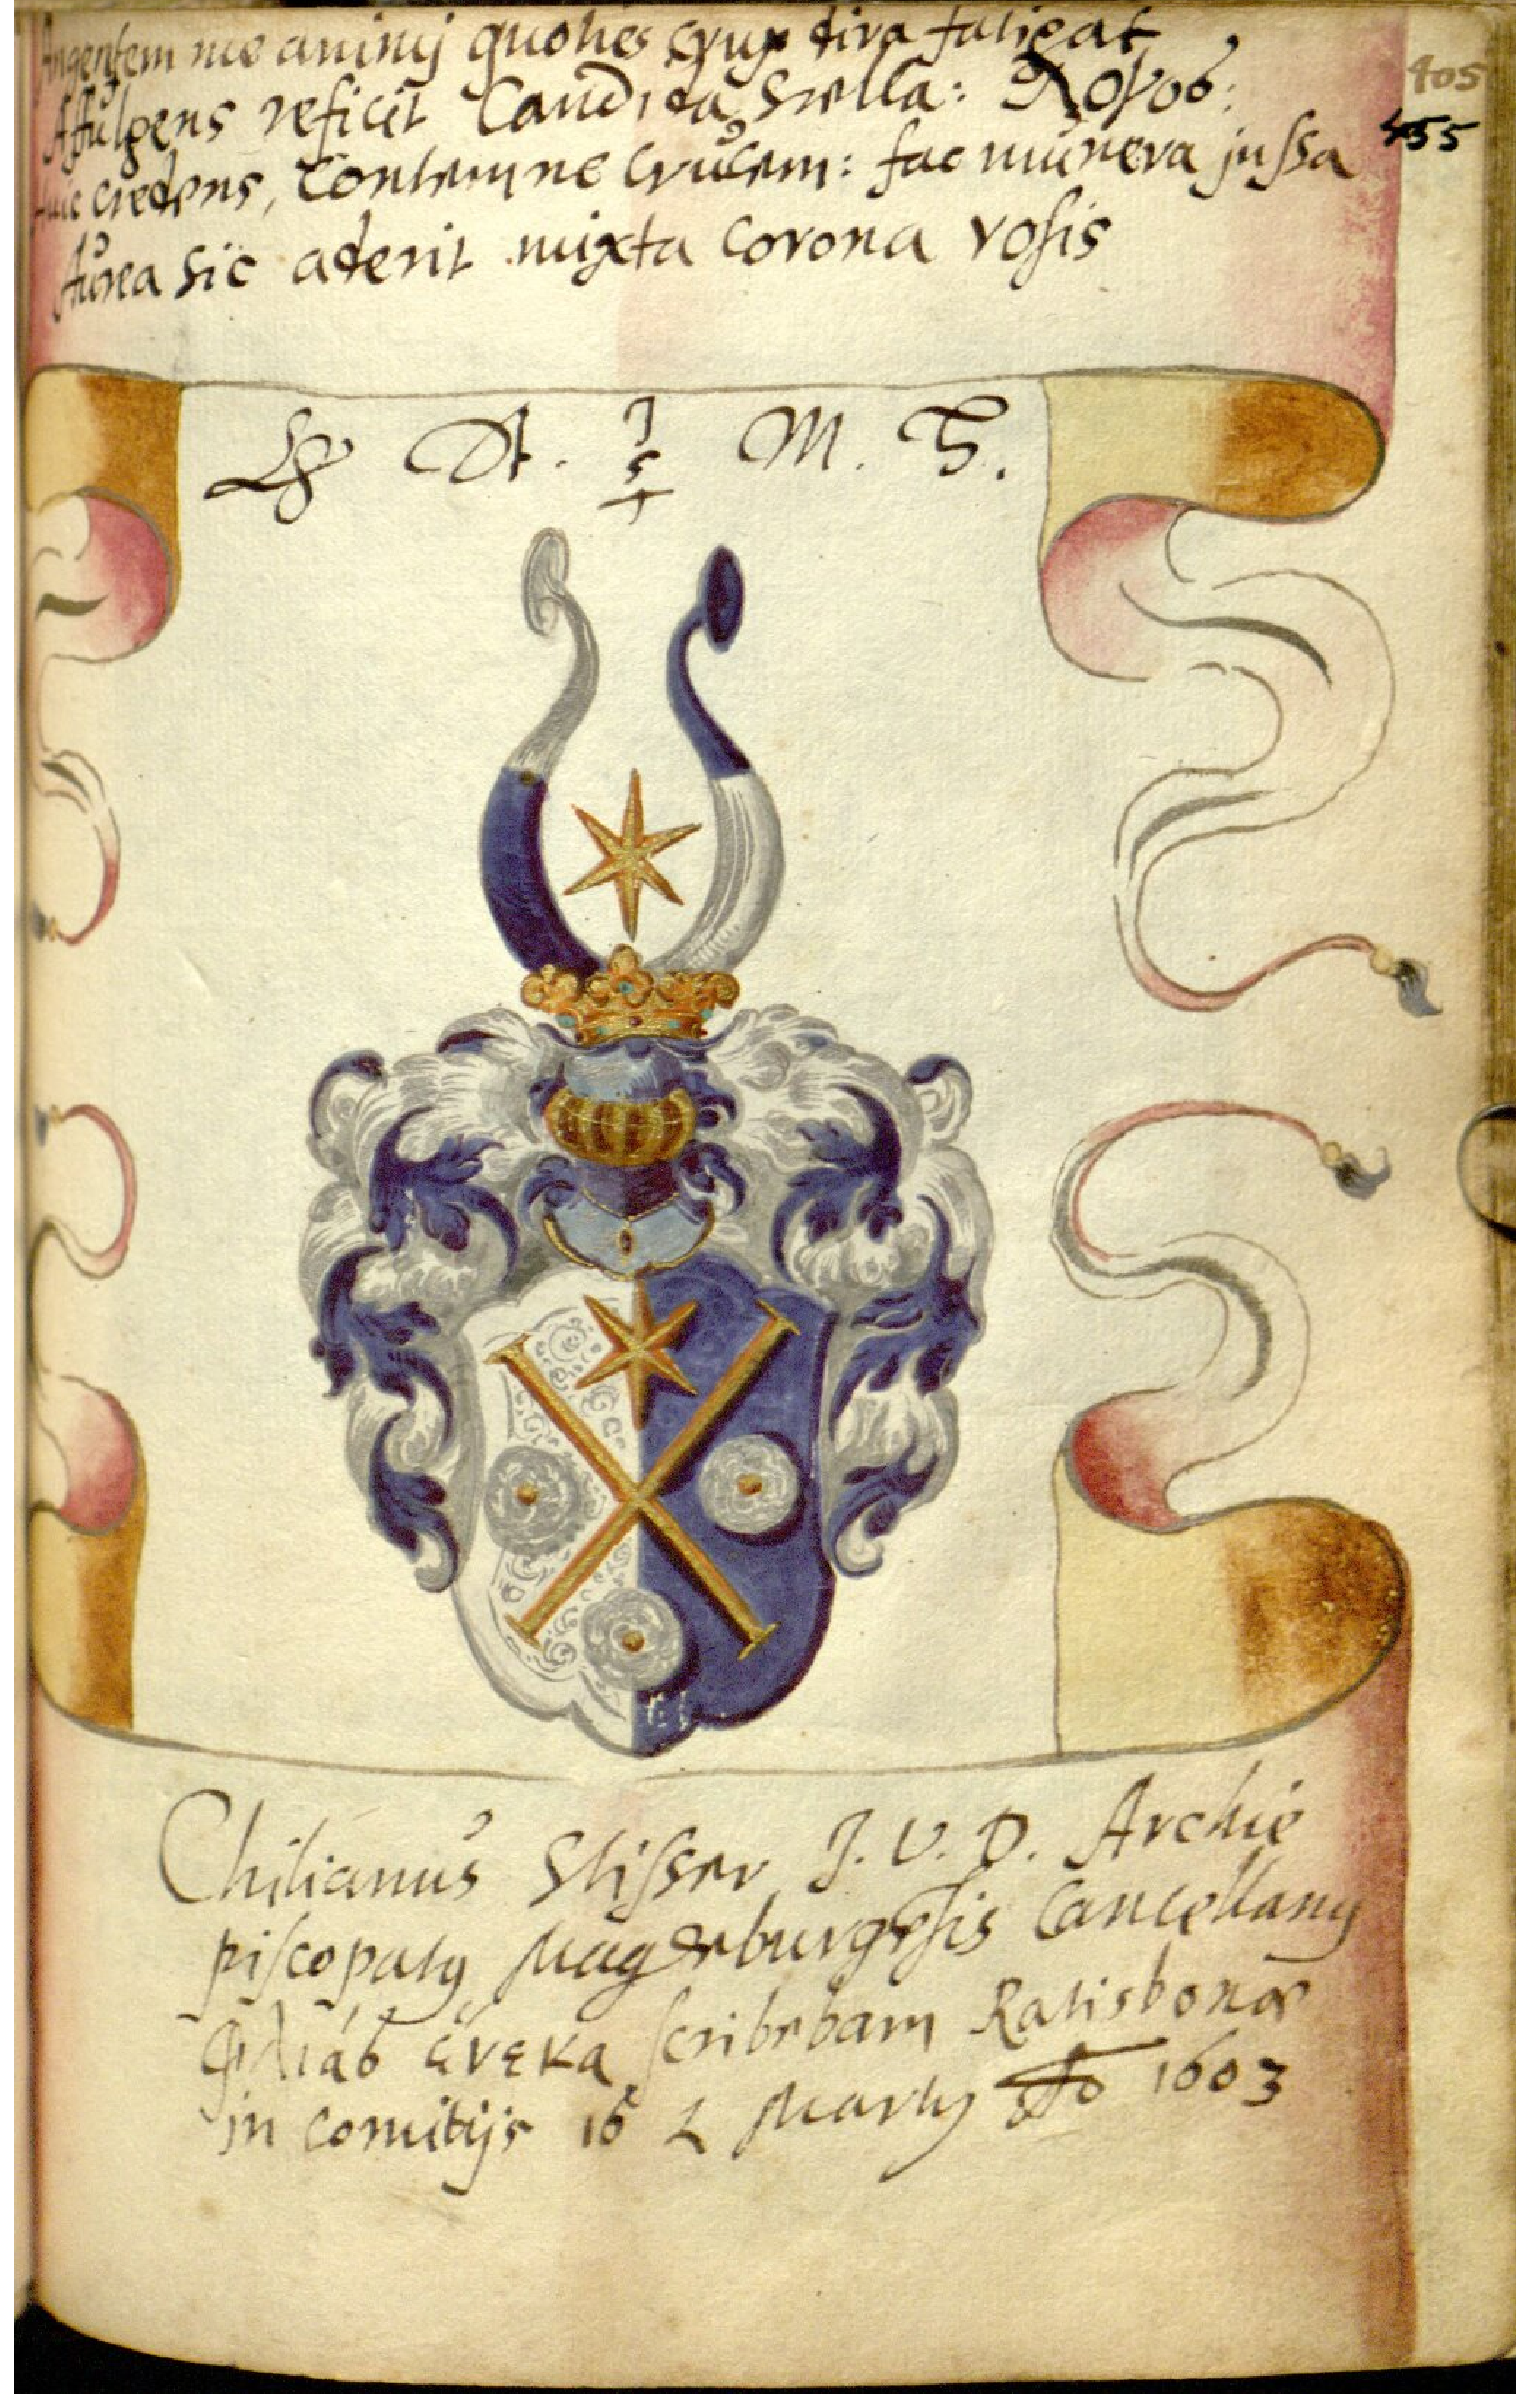 Angentem me animj quoties crux dira fatigat,
Affulgens reficit Candida Stella:
405
huic credens, Contemne Crucem: fac munera jussa
455
Aurea sic aderit mixta corona rosis
M.
Chilianus Stisser J. V. D. Archie
piscopatus Magdeburgēsis Cancellariꝰ
φιλίας ἕνεκα scribebam Ratisbonæ
in comitijs Martij Aō 1603